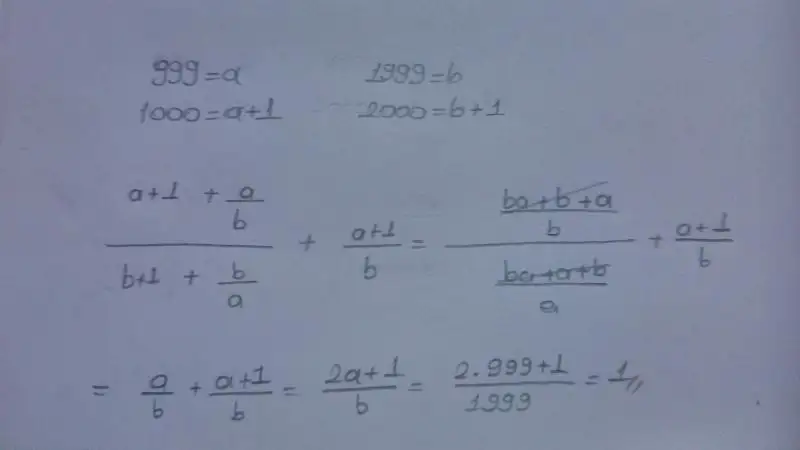 999=a 1999=b
1000=a+1 2000=b+1
a+1 + a/b
b+1 + b/a
+ a+1/b =
ba+b+a/b
ba+a+b/a
+ a+1/b
= a/b + a+1/b = 2a+1/b = 2.999+1/1999 = 1//